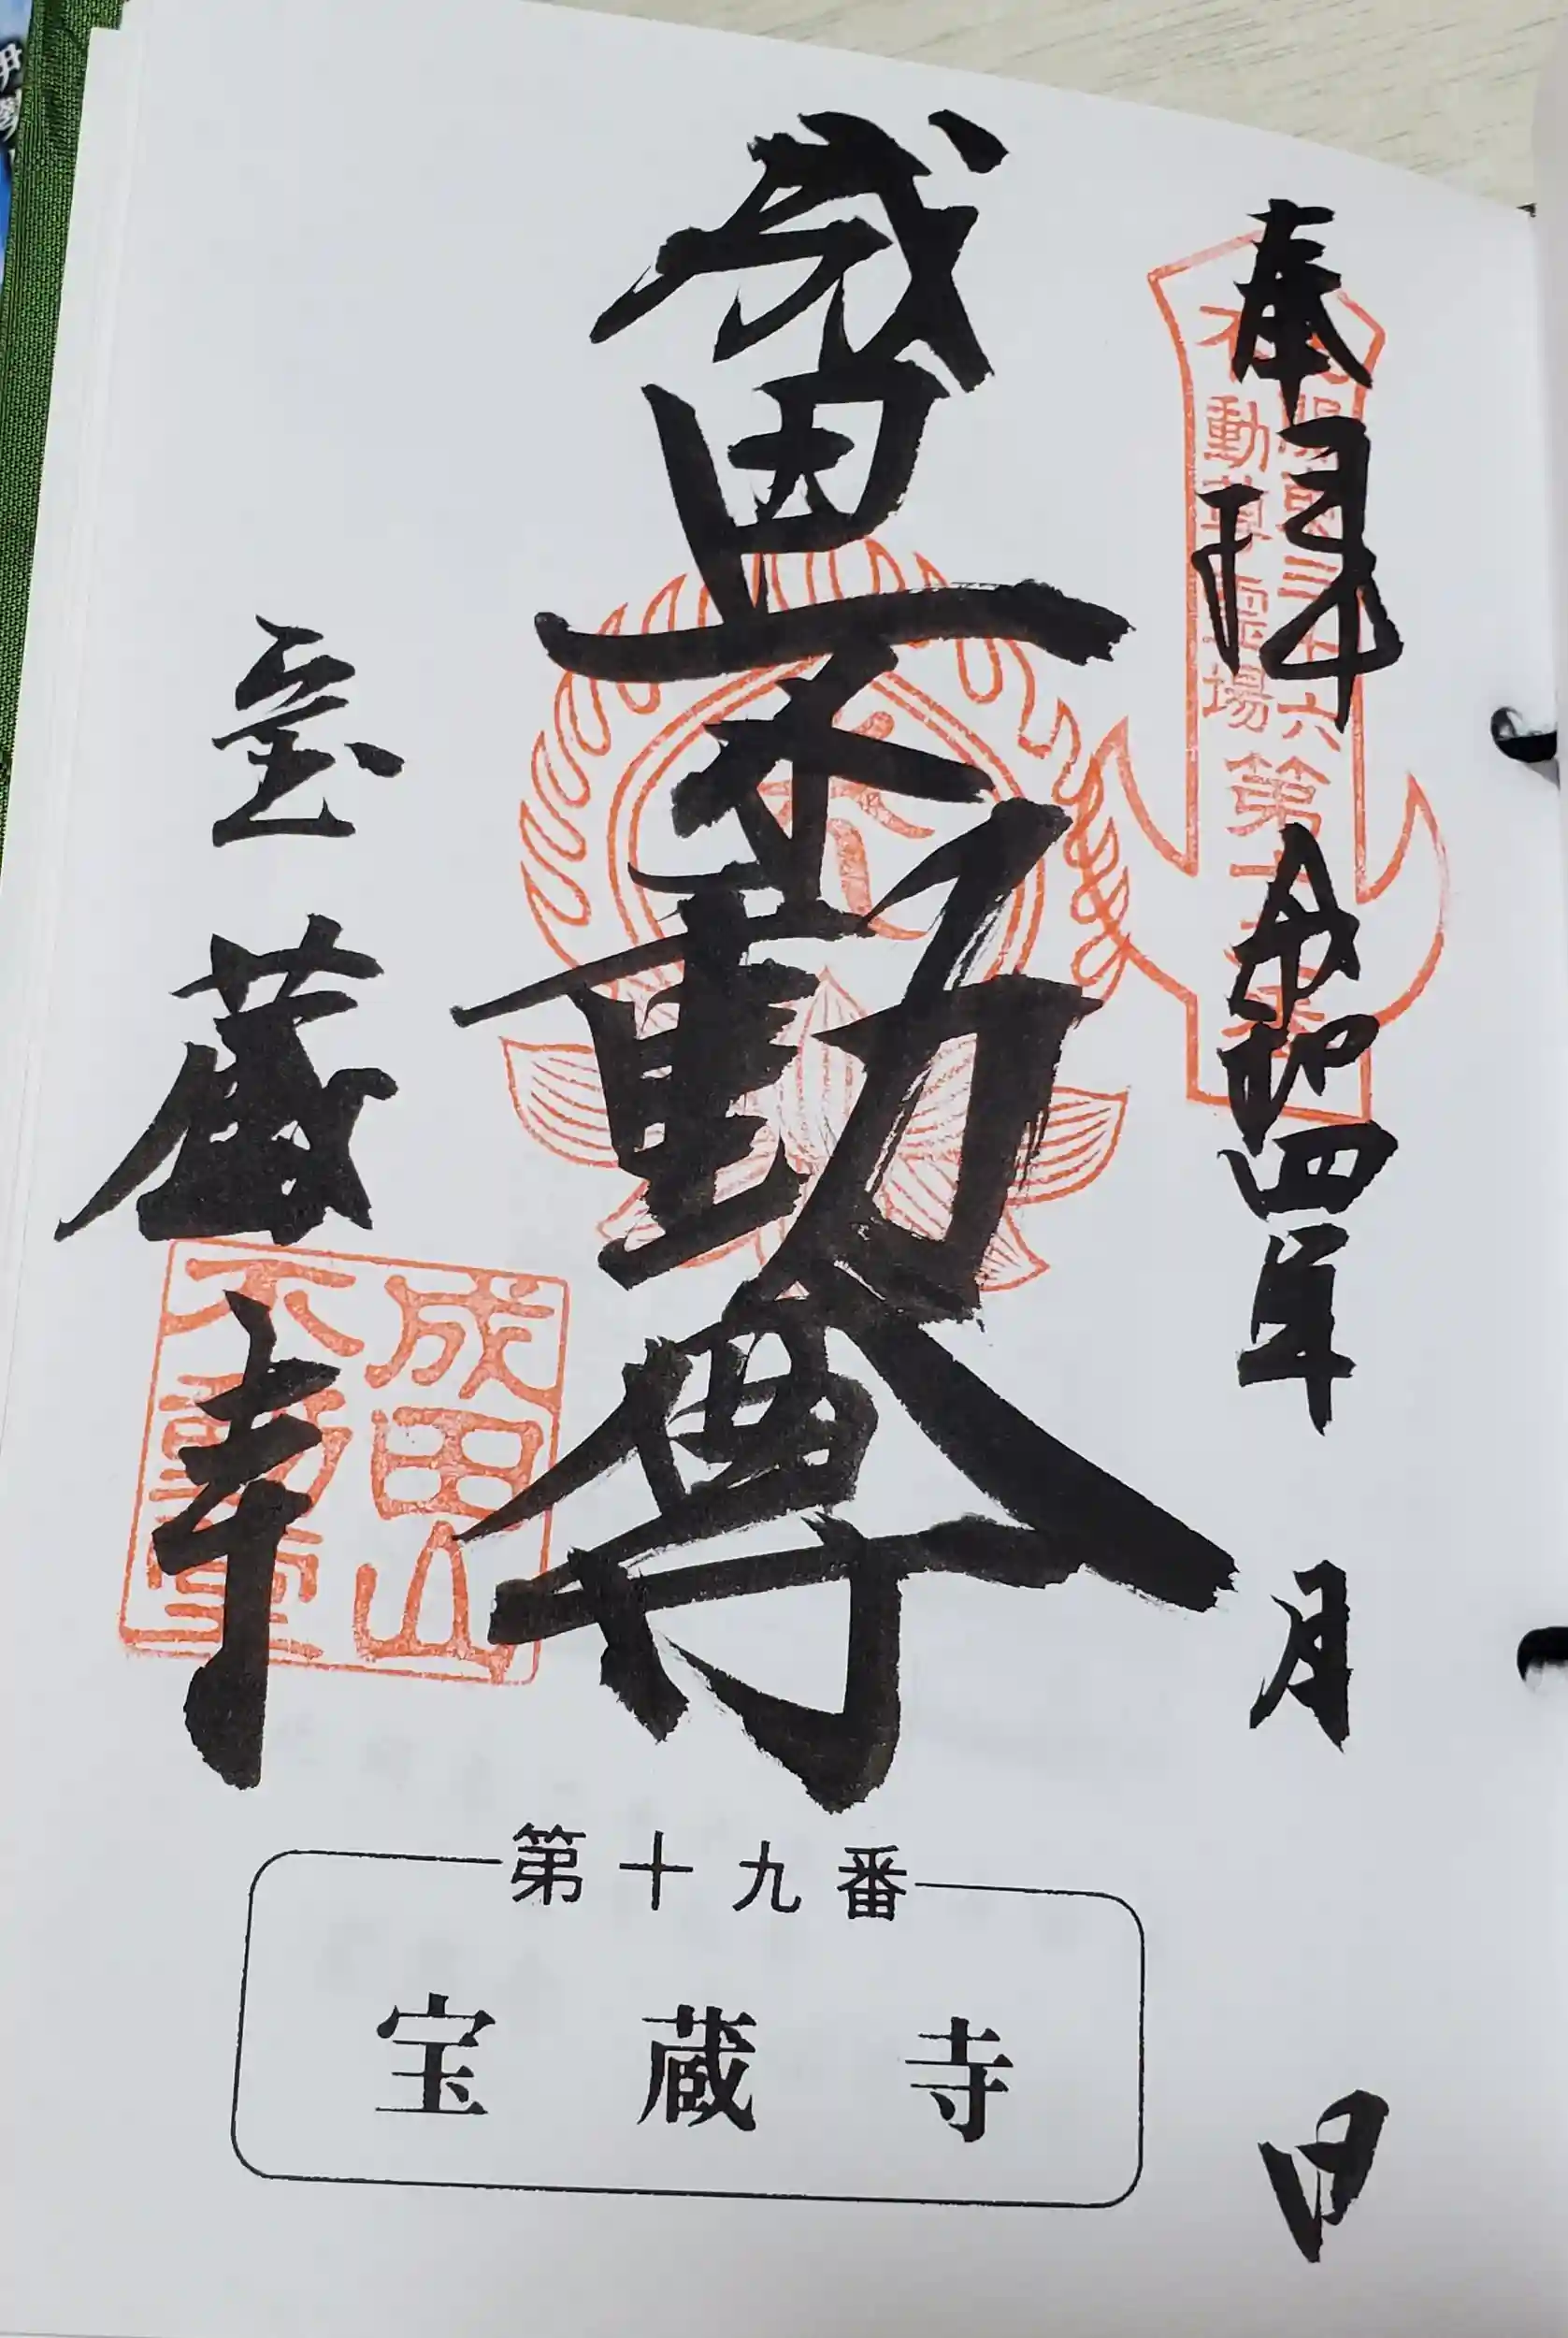 奉拝 令和四年 月 日
不動尊霊場
成田山不動尊
宝蔵寺
成田山
不動堂
第十九番
宝蔵寺